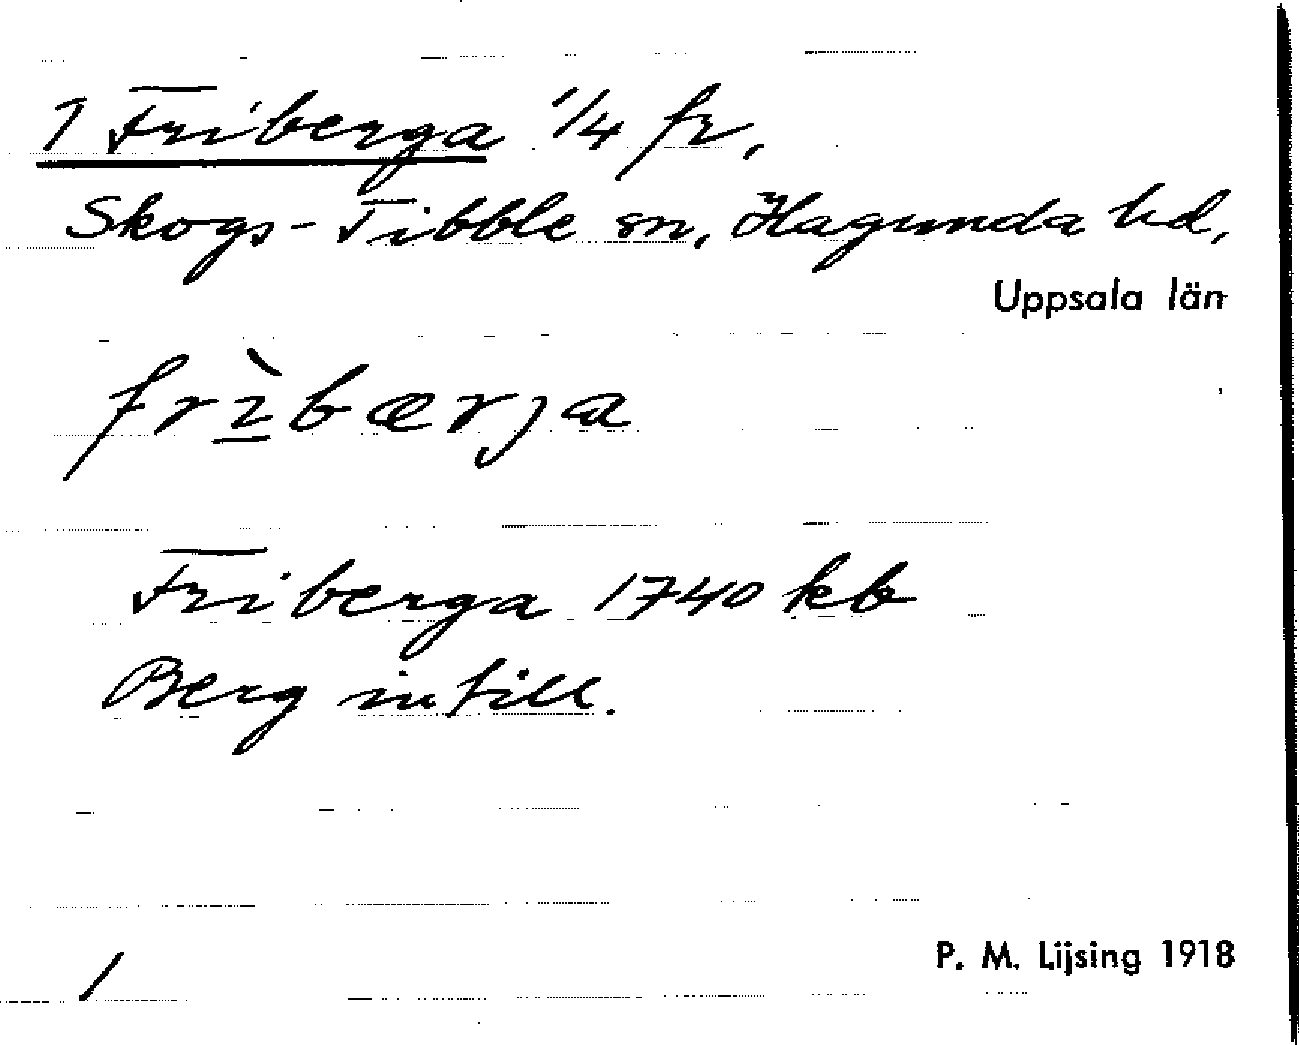 1 Friberga 1/4 fr,
Skogs-Tibble sn, Hagunda hd,
Uppsala län
frìbærja
Friberga 1740 kb
Berg intill.
1
P. M. Lijsing 1918